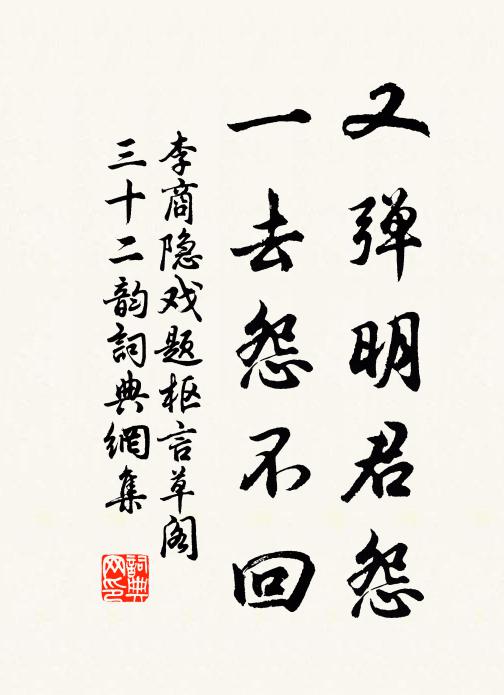 又弹明君怨
一去怨不回
李商隐戏题枢言草阁
三十二韵詞典網集
詞典
网印